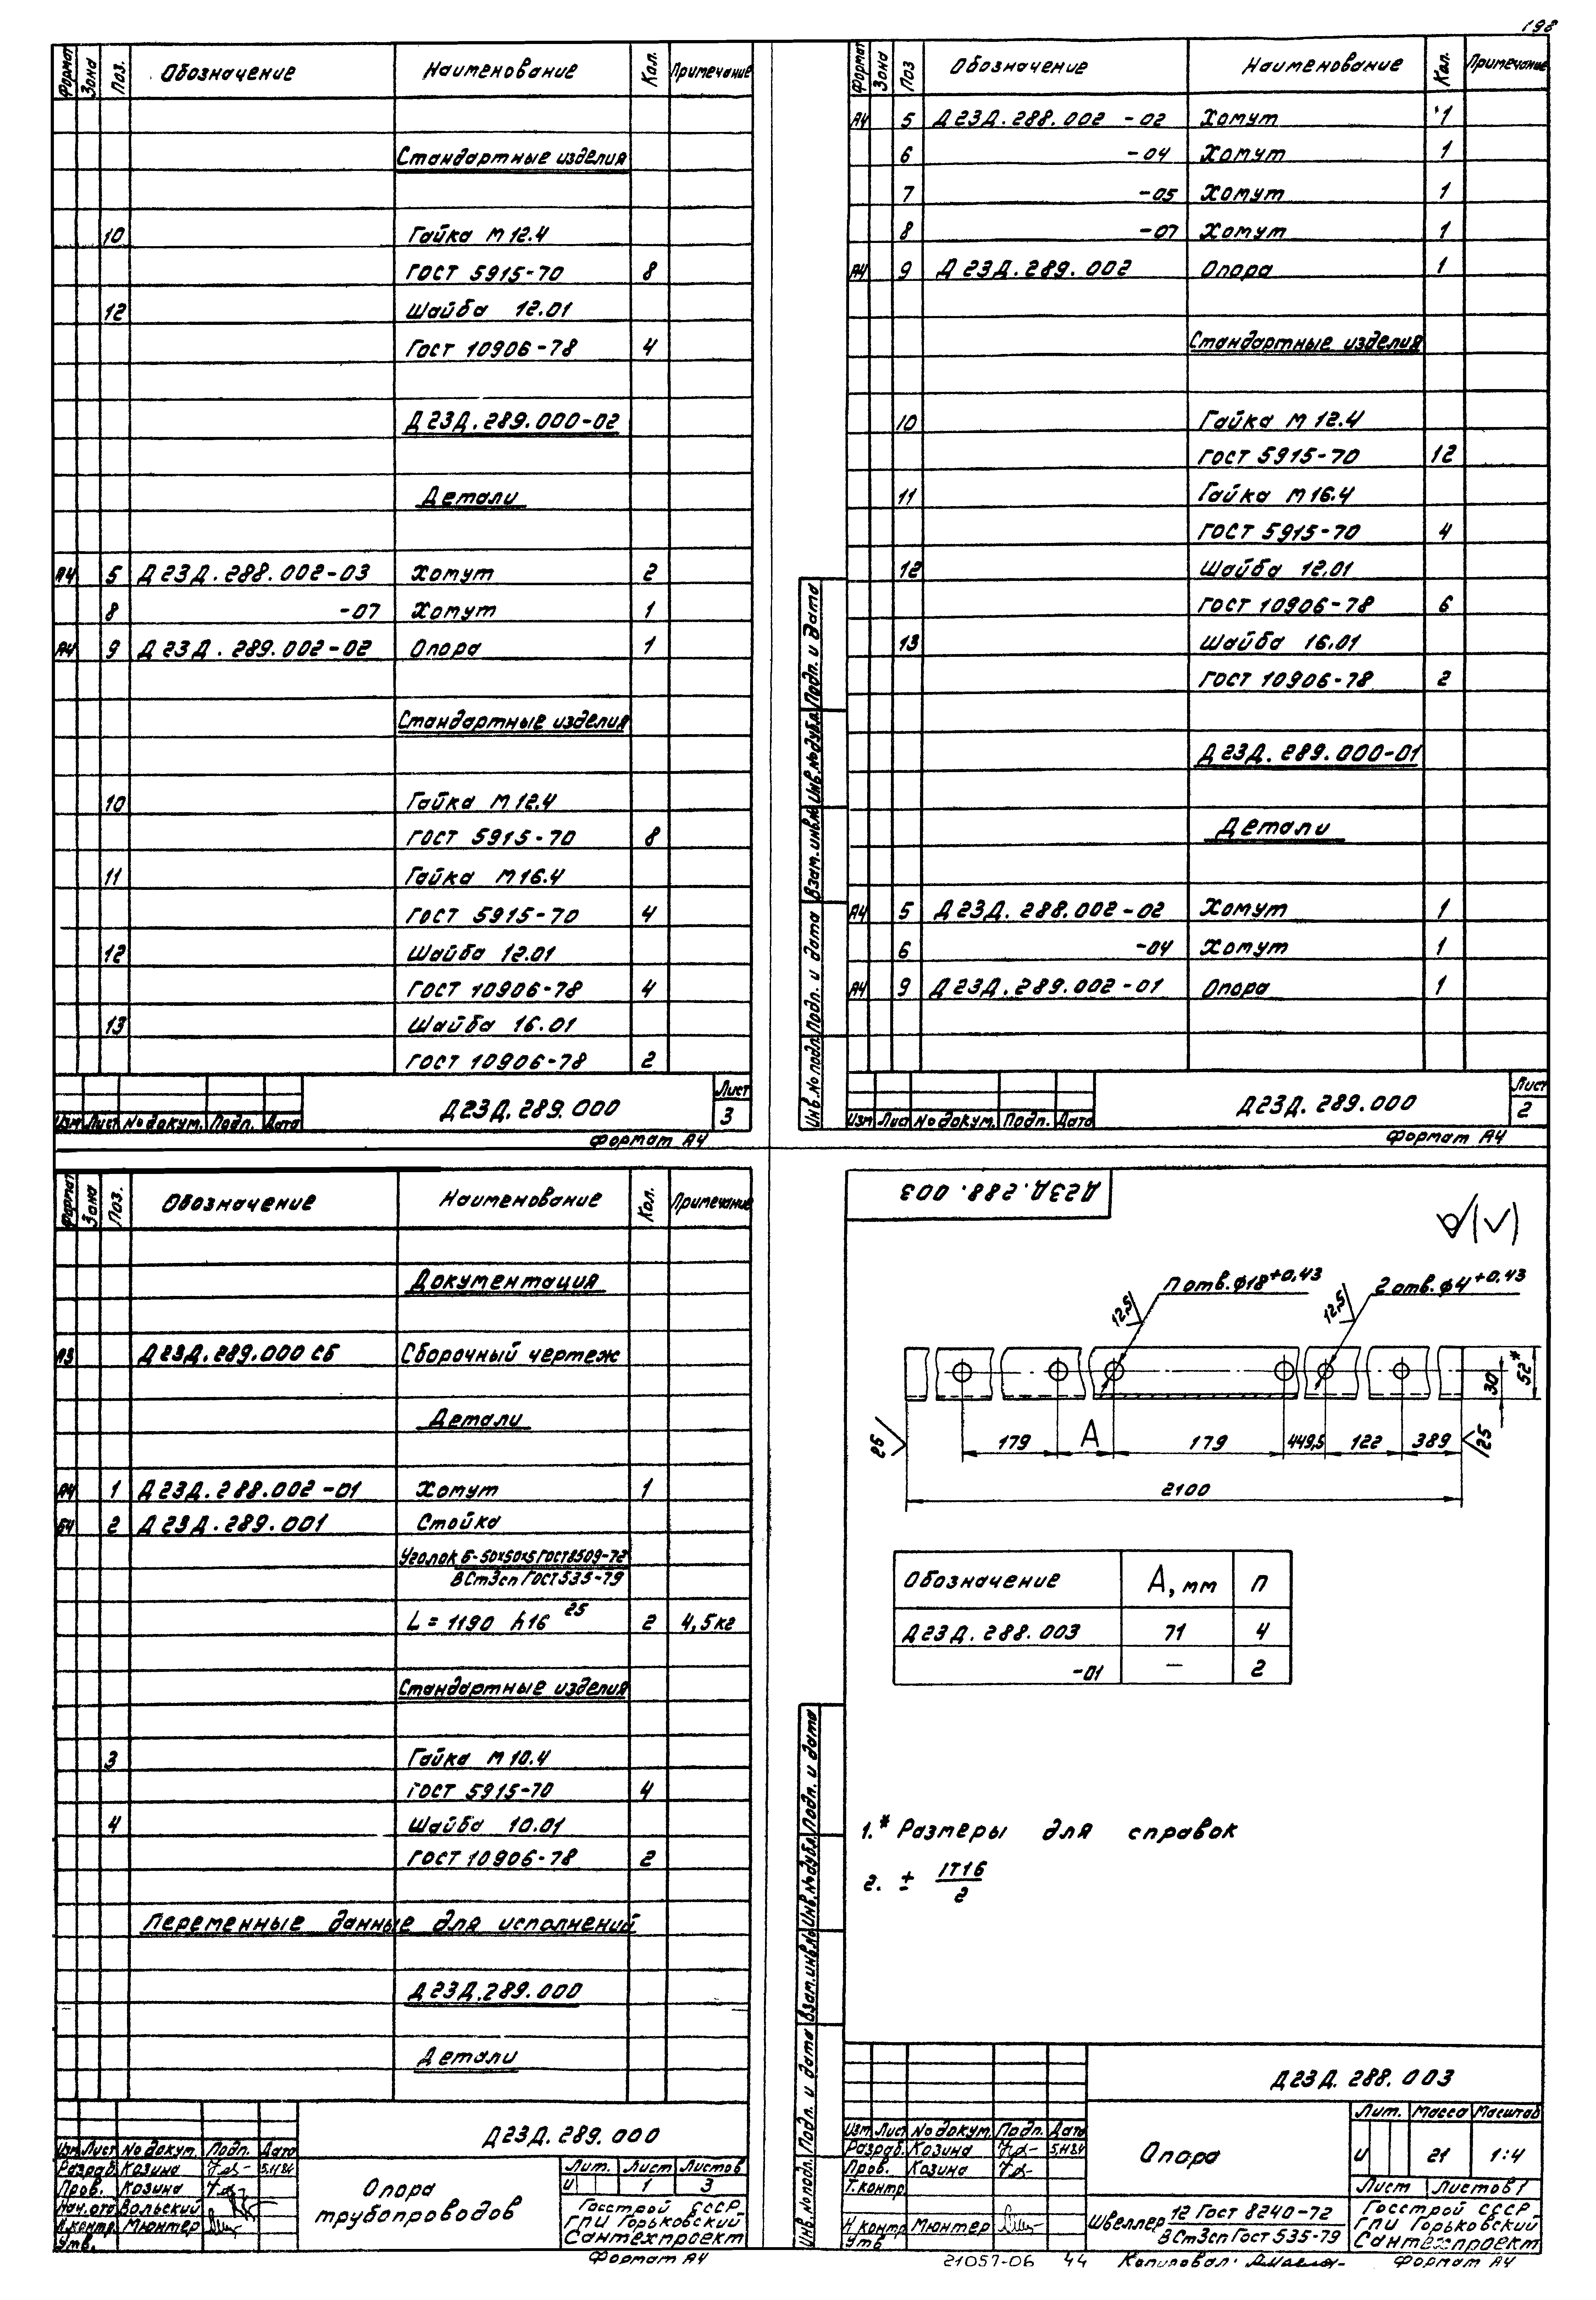 198
Формат Зона Поз. Обозначение Наименование Кол. Примечание
Стандартные изделия
10 Гайка М12.4
ГОСТ 5915-70 8
12 Шайба 12.01
ГОСТ 10906-78 4
Д23Д.289.000-02
Детали
А4 5 Д23Д.288.002-03 Хомут 2
8 -07 Хомут 1
А4 9 Д23Д.289.002-02 Опора 1
Стандартные изделия
10 Гайка М12.4
ГОСТ 5915-70 8
11 Гайка М16.4
ГОСТ 5915-70 4
12 Шайба 12.01
ГОСТ 10906-78 4
13 Шайба 16.01
ГОСТ 10906-78 2
Д23Д.289.000
Лист
3
Изм Лист № докум. Подп. Дата
Формат А4
Формат Зона Поз Обозначение Наименование Кол. Примечание
А4 5 Д23Д.288.002 -02 Хомут 1
6 -04 Хомут 1
7 -05 Хомут 1
8 -07 Хомут 1
А4 9 Д23Д.289.002 Опора 1
Стандартные изделия
10 Гайка М12.4
ГОСТ 5915-70 12
11 Гайка М16.4
ГОСТ 5915-70 4
12 Шайба 12.01
ГОСТ 10906-78 6
13 Шайба 16.01
ГОСТ 10906-78 2
Д23Д.289.000-01
Детали
А4 5 Д23Д.288.002-02 Хомут 1
6 -04 Хомут 1
А4 9 Д23Д.289.002-01 Опора 1
Инв.№ подл. Подп. и дата Взам.инв.№ Инв.№ дубл. Подп. и дата
Д23Д.289.000
Лист
2
Изм Лист № докум. Подп. Дата
Формат А4
Формат Зона Поз. Обозначение Наименование Кол. Примечание
Документация
А3 Д23Д.289.000 СБ Сборочный чертеж
Детали
А4 1 Д23Д.288.002-01 Хомут 1
Б4 2 Д23Д.289.001 Стойка
Уголок Б-50х50х5 ГОСТ 8509-72
ВСт3сп ГОСТ 535-79
L=1190 h16 25 2 4,5кг
Стандартные изделия
3 Гайка М10.4
ГОСТ 5915-70 4
4 Шайба 10.01
ГОСТ 10906-78 2
Переменные данные для исполнений
Д23Д.289.000
Детали
Д23Д.289.000
Изм Лист № докум. Подп. Дата
Разраб. Козина 5.11.84
Пров. Козина
Нач.отд Вольский
Н.контр. Мюнтер
Утв.
Опора
трубопроводов
Лит. Лист Листов
И 1 3
Госстрой СССР
ГПИ Горьковский
Сантехпроект
Формат А4
Д23Д.288.003
(√)
п отв. ф18+0,43
2 отв. ф4+0,43
12,5
12,5
30
52*
25
25
179 А 179 449,5 122 389
2100
Обозначение А, мм п
Д23Д.288.003 71 4
-01 — 2
1.* Размеры для справок
2. ± IT16
2
Инв.№ подл. Подп. и дата Взам.инв.№ Инв.№ дубл. Подп. и дата
Д23Д.288.003
Изм Лист № докум. Подп. Дата
Разраб. Козина 5.11.84
Пров. Козина
Т.контр
Н контр Мюнтер
Утв
Опора
Лит. Масса Масштаб
И 21 1:4
Лист Листов 1
Швеллер 12 ГОСТ 8240-72
ВСт3сп ГОСТ 535-79
Госстрой СССР
ГПИ Горьковский
Сантехпроект
21057-06 44 Копировал: Формат А4